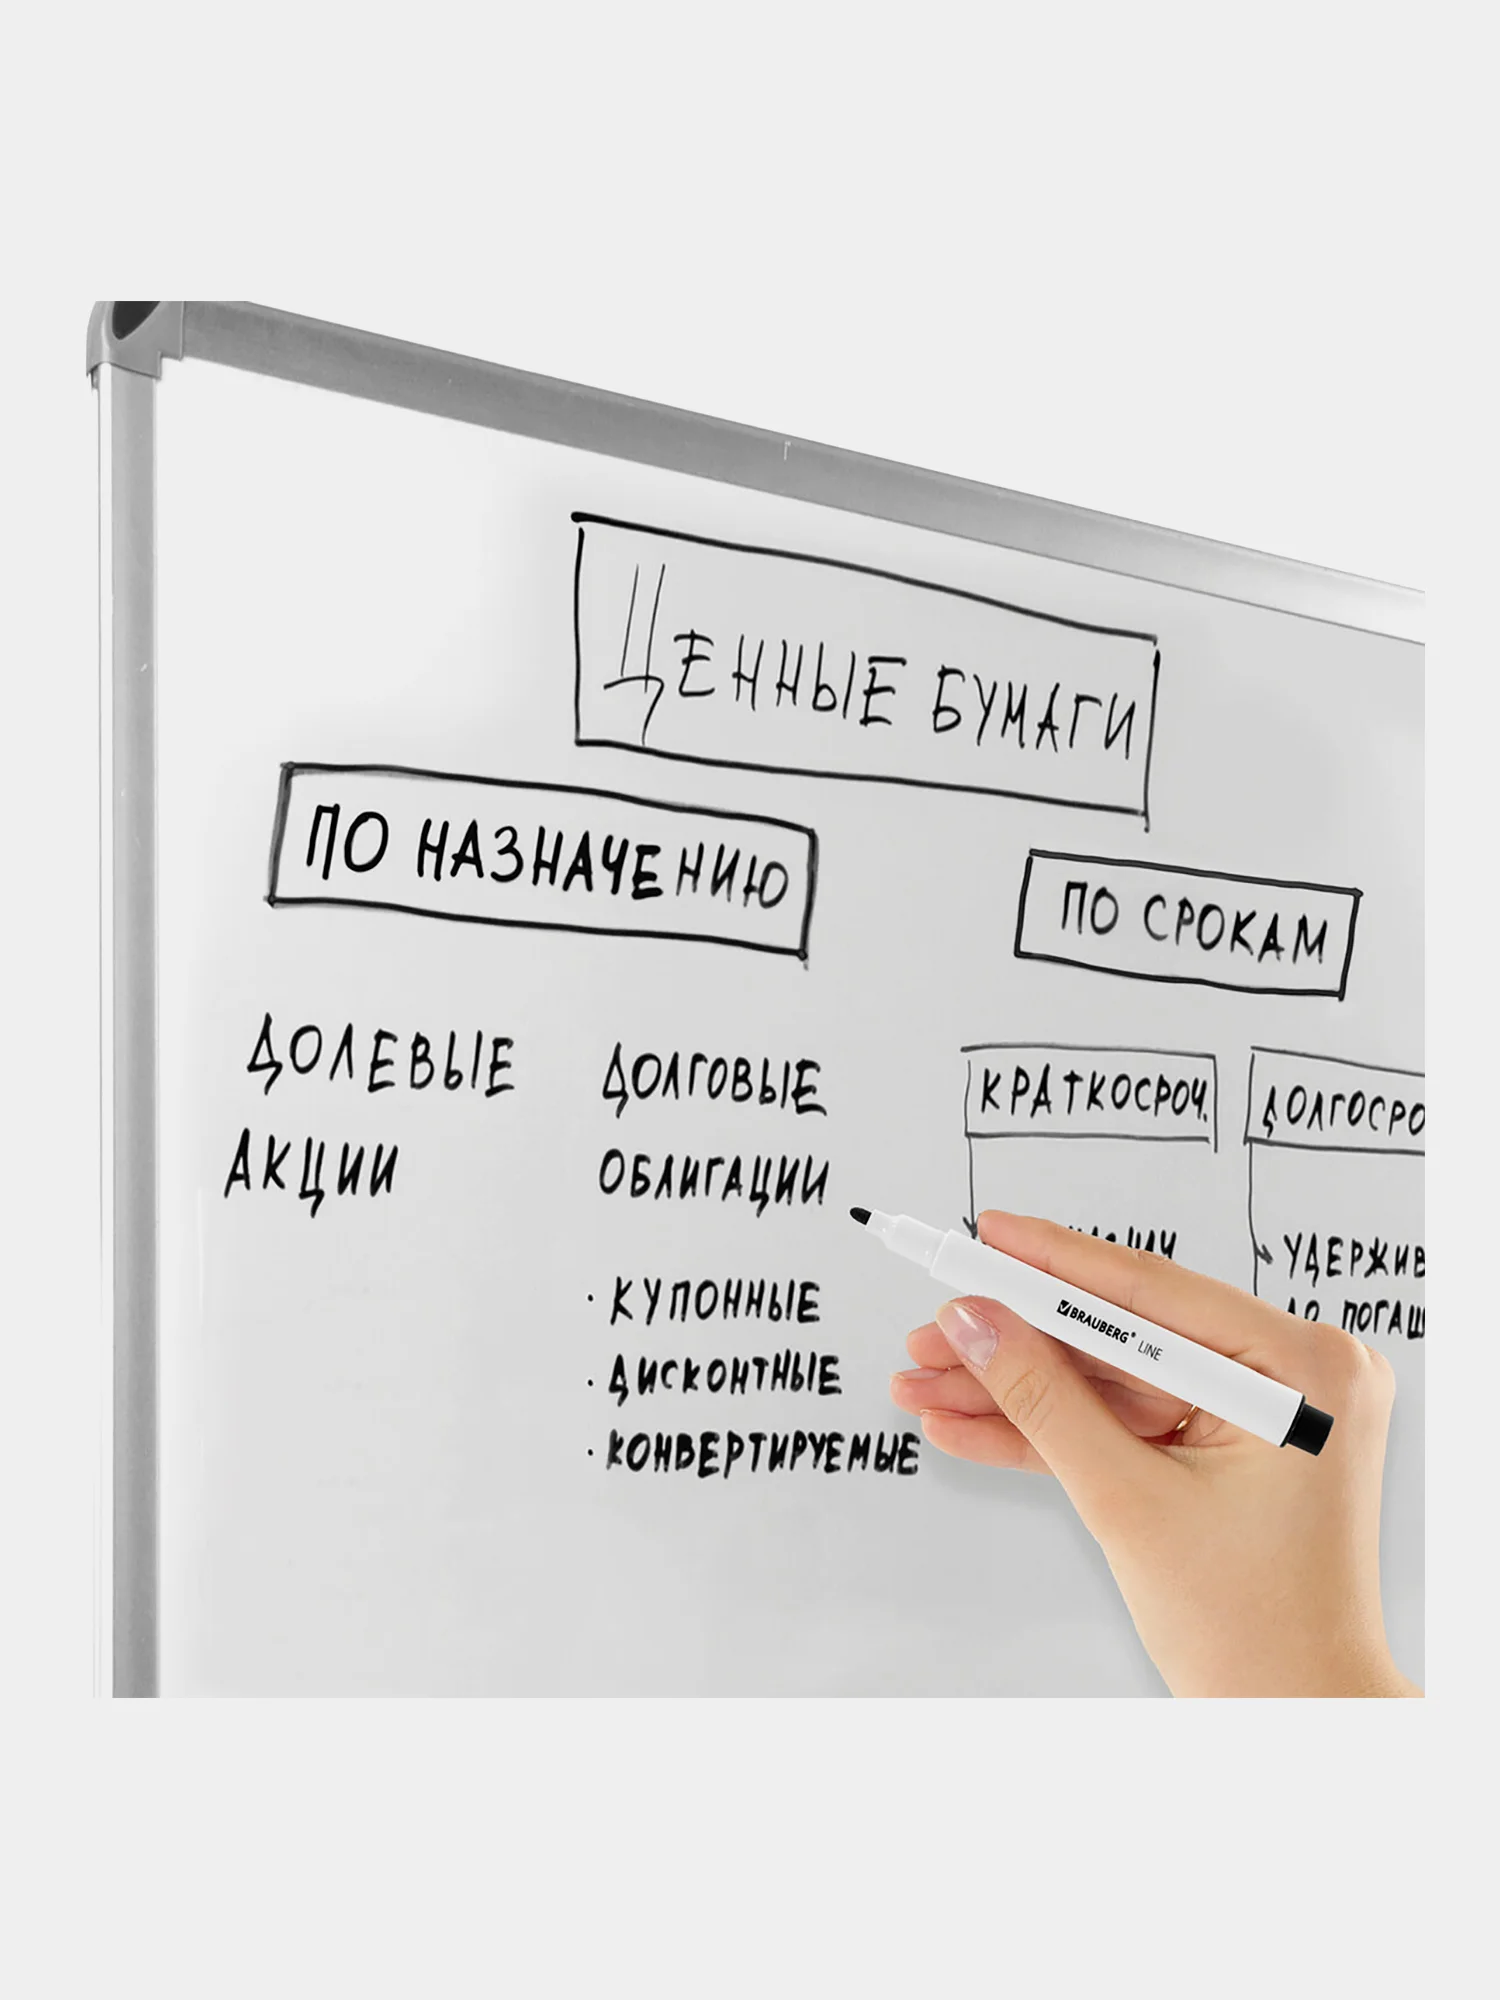 ЦЕННЫЕ БУМАГИ
ПО НАЗНАЧЕНИЮ
ПО СРОКАМ
ДОЛЕВЫЕ
АКЦИИ
ДОЛГОВЫЕ
ОБЛИГАЦИИ
· КУПОННЫЕ
· ДИСКОНТНЫЕ
· КОНВЕРТИРУЕМЫЕ
КРАТКОСРОЧ.
ДОЛГОСРО
УДЕРЖИВ
ДО ПОГАШ
BRAUBERG® LINE